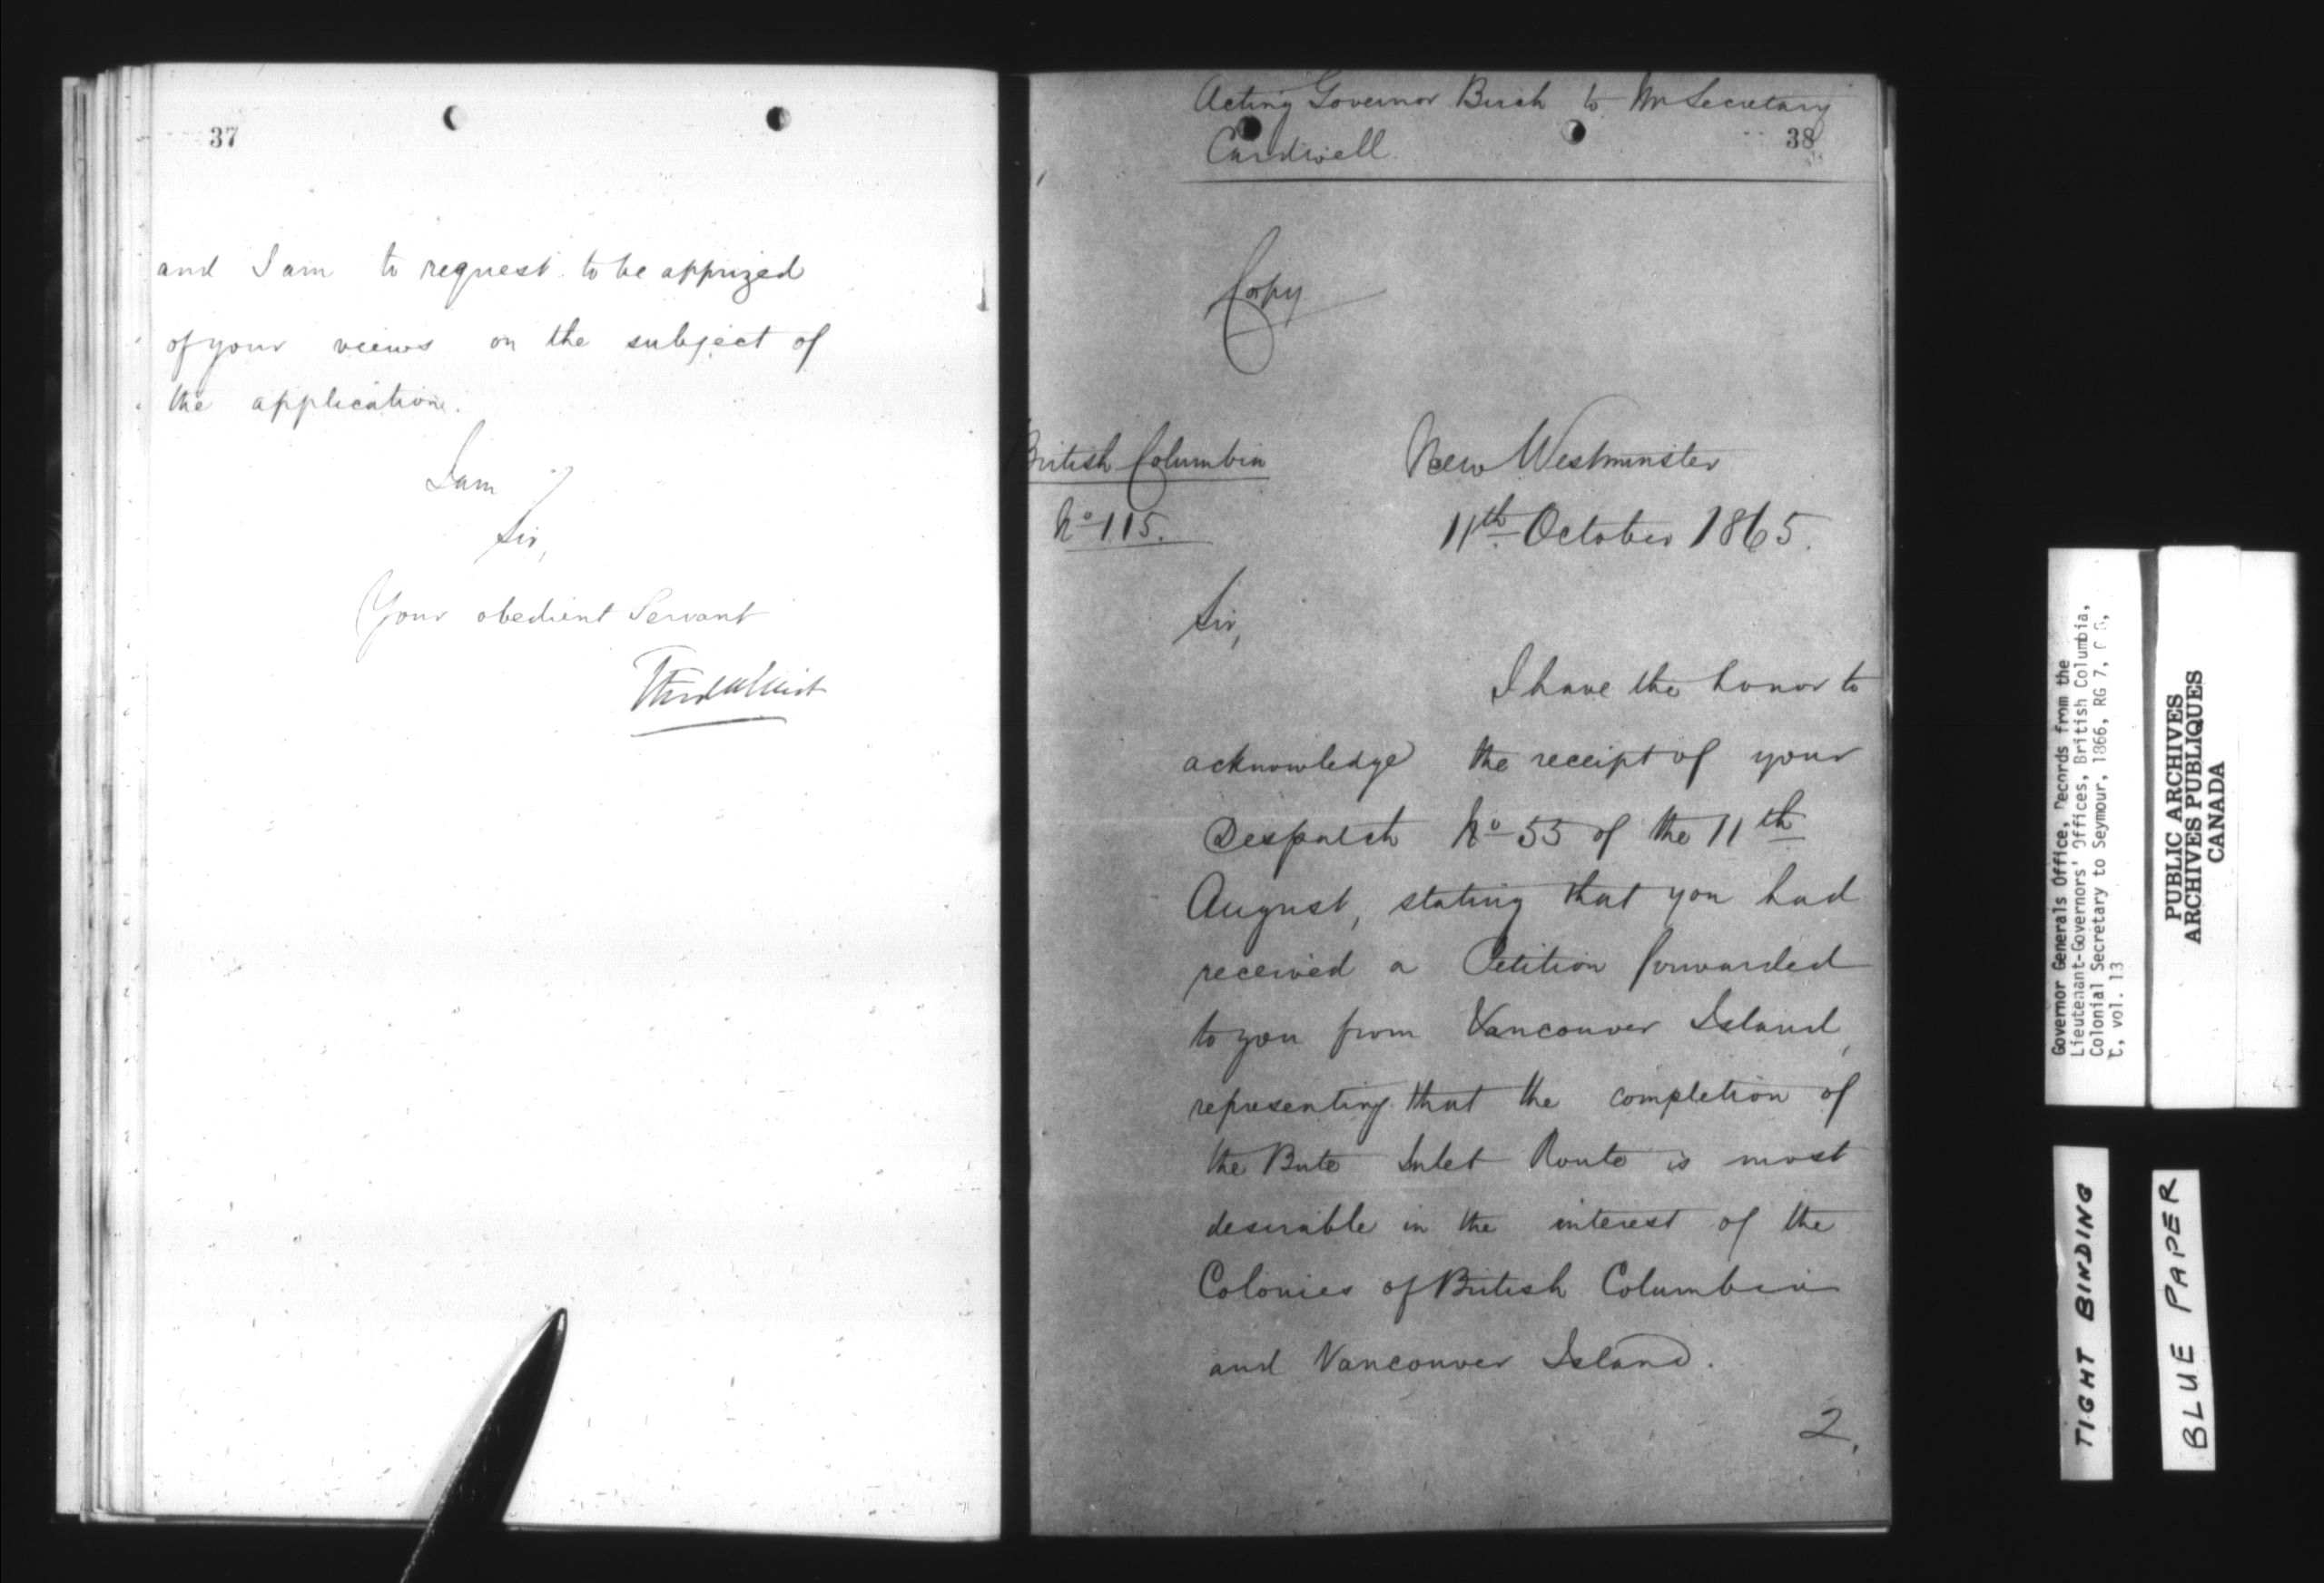 37
and I am to request to be apprized
of your views on the subject of
the application.
I am
Sir,
Your obedient Servant
Acting Governor Birch to Mr Secretary
Cardwell.
38
Copy
British Columbia
No 115.
New Westminster
11th October 1865.
Sir,
I have the honor to
acknowledge the receipt of your
Despatch No 55 of the 11th
August, stating that you had
received a Petition forwarded
to you from Vancouver Island,
representing that the completion of
the Bute Inlet Route is most
desirable in the interest of the
Colonies of British Columbia
and Vancouver Island.
2.
Governor Generals Office, Records from the
Lieutenant-Governors' Offices, British Columbia,
Colonial Secretary to Seymour, 1866, RG 7,
C, vol. 13
PUBLIC ARCHIVES
ARCHIVES PUBLIQUES
CANADA
TIGHT BINDING
BLUE PAPER